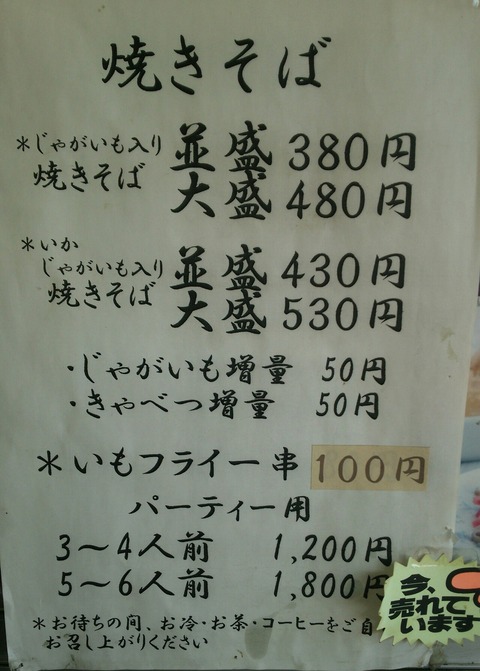 焼きそば
＊じゃがいも入り 並盛 380円
焼きそば 大盛 480円
＊いか
じゃがいも入り 並盛 430円
焼きそば 大盛 530円
・じゃがいも増量 50円
・きゃべつ増量 50円
＊いもフライ一串 100円
パーティー用
3～4人前 1,200円
5～6人前 1,800円
＊お待ちの間、お冷・お茶・コーヒーをご自
お召し上がりください
今、
売れて
います